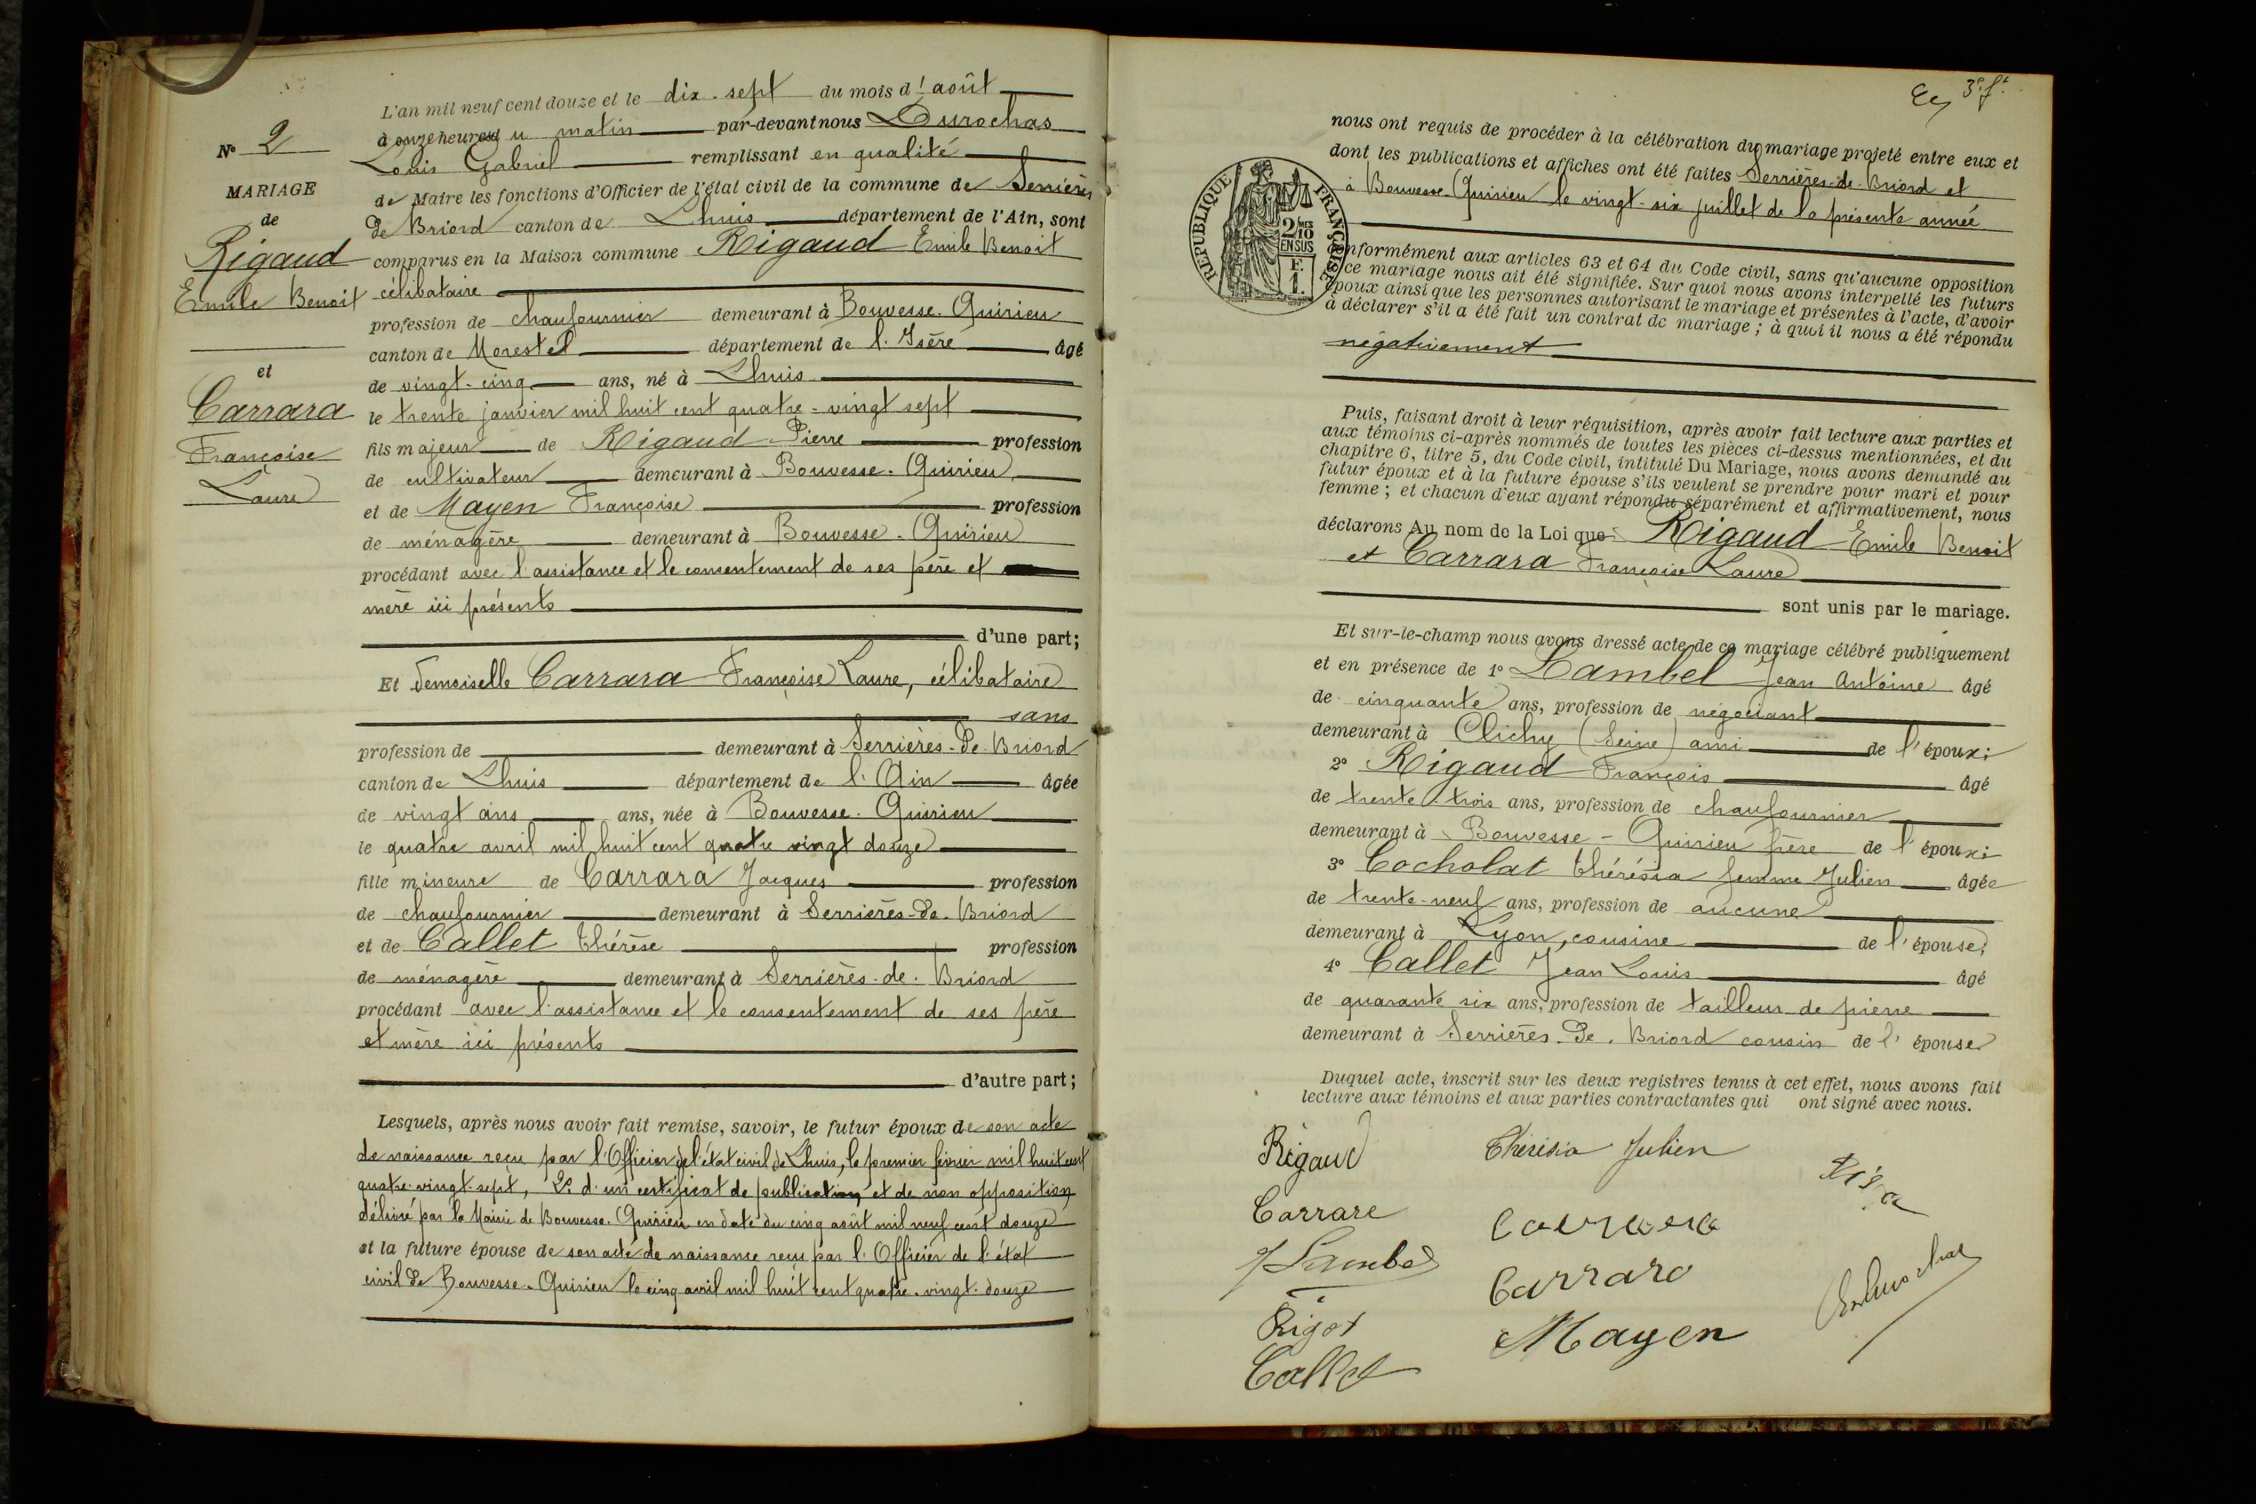 N° 2
MARIAGE
de
Rigaud
Emile Benoit
et
Carrara
Françoise
Laure
L'an mil neuf cent douze et le dix-sept du mois d'août
à onze heures du matin par-devant nous Durochas
Louis Gabriel remplissant en qualité
de Maire les fonctions d'Officier de l'état civil de la commune de Serrières
de Briord canton de Lhuis département de l'Ain, sont
comparus en la Maison commune Rigaud Emile Benoit
célibataire
profession de chaufournier demeurant à Bouvesse-Quirieu
canton de Morestel département de l'Isère âgé
de vingt-cinq ans, né à Lhuis
le trente janvier mil huit cent quatre-vingt sept
fils majeur de Rigaud Pierre profession
de cultivateur demeurant à Bouvesse-Quirieu
et de Mayen Françoise profession
de ménagère demeurant à Bouvesse-Quirieu
procédant avec l'assistance et le consentement de ses père et
mère ici présents
d'une part;
Et demoiselle Carrara Françoise Laure, célibataire
sans
profession de demeurant à Serrières-de-Briord
canton de Lhuis département de l'Ain âgée
de vingt ans ans, née à Bouvesse-Quirieu
le quatre avril mil huit cent quatre vingt douze
fille mineure de Carrara Jacques profession
de chaufournier demeurant à Serrières-de-Briord
et de Callet thérèse profession
de ménagère demeurant à Serrières-de-Briord
procédant avec l'assistance et le consentement de ses père
et mère ici présents
d'autre part;
Lesquels, après nous avoir fait remise, savoir, le futur époux de son acte
de naissance reçu par l'Officier de l'état civil de Lhuis, le premier février mil huit cent
quatre-vingt-sept, 2° d'un certificat de publication et de non opposition
délivré par la Mairie de Bouvesse-Quirieu en date du cinq août mil neuf cent douze
et la future épouse de son acte de naissance reçu par l'Officier de l'état
civil de Bouvesse-Quirieu le cinq avril mil huit cent quatre-vingt-douze
3e ft.
nous ont requis de procéder à la célébration du mariage projeté entre eux et
dont les publications et affiches ont été faites Serrières-de-Briord et
à Bouvesse-Quirieu le vingt-six juillet de la présente année
RÉPUBLIQUE FRANÇAISE
2/10 MES
EN SUS
F.
1.
conformément aux articles 63 et 64 du Code civil, sans qu'aucune opposition
à ce mariage nous ait été signifiée. Sur quoi nous avons interpellé les futurs
époux ainsi que les personnes autorisant le mariage et présentes à l'acte, d'avoir
à déclarer s'il a été fait un contrat de mariage; à quoi il nous a été répondu
négativement
Puis, faisant droit à leur réquisition, après avoir fait lecture aux parties et
aux témoins ci-après nommés de toutes les pièces ci-dessus mentionnées, et du
chapitre 6, titre 5, du Code civil, intitulé Du Mariage, nous avons demandé au
futur époux et à la future épouse s'ils veulent se prendre pour mari et pour
femme; et chacun d'eux ayant répondu séparément et affirmativement, nous
déclarons Au nom de la Loi que Rigaud Emile Benoit
et Carrara Françoise Laure
sont unis par le mariage.
Et sur-le-champ nous avons dressé acte de ce mariage célébré publiquement
et en présence de 1° Lambel Jean Antoine âgé
de cinquante ans, profession de négociant
demeurant à Clichy (Seine) ami de l'époux;
2° Rigaud François âgé
de trente-trois ans, profession de chaufournier
demeurant à Bouvesse-Quirieu frère de l'époux;
3° Cocholat thérésia femme Julien âgée
de trente-neuf ans, profession de aucune
demeurant à Lyon, cousine de l'épouse;
4° Callet Jean Louis âgé
de quarante six ans, profession de tailleur de pierre
demeurant à Serrières-de-Briord cousin de l'épouse
Duquel acte, inscrit sur les deux registres tenus à cet effet, nous avons fait
lecture aux témoins et aux parties contractantes qui ont signé avec nous.
Rigaud Thérésia Julien
Carrare Carrara
J Lambel Carrara
Callet Mayen